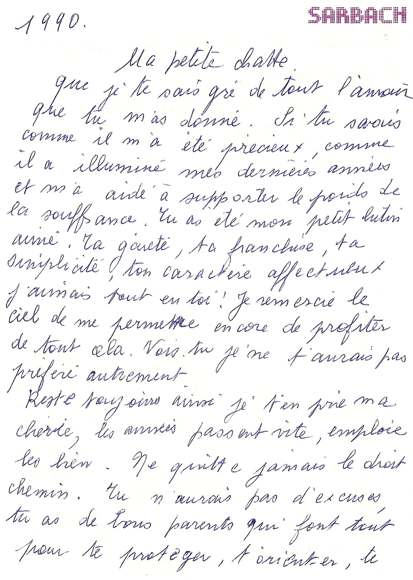 1990.
SARBACH
Ma petite chatte
que je te sais gré de tout l'amour
que tu m'as donné. Si tu savais
comme il m'a été précieux, comme
il a illuminé mes dernières années
et m'a aidé à supporter le poids de
la souffrance. Tu as été mon petit lutin
aimé. Ta gaieté, ta franchise, ta
simplicité, ton caractère affectueux
j'aimais tout en toi! Je remercie le
ciel de me permettre encore de profiter
de tout cela. Vois-tu je ne t'aurais pas
préféré autrement
Reste toujours ainsi je t'en prie ma
chérie, les années passent vite, emploie
les bien. Ne quitte jamais le droit
chemin. Tu n'aurais pas d'excuses,
tu as de bons parents qui font tout
pour te protéger, t'orienter, te